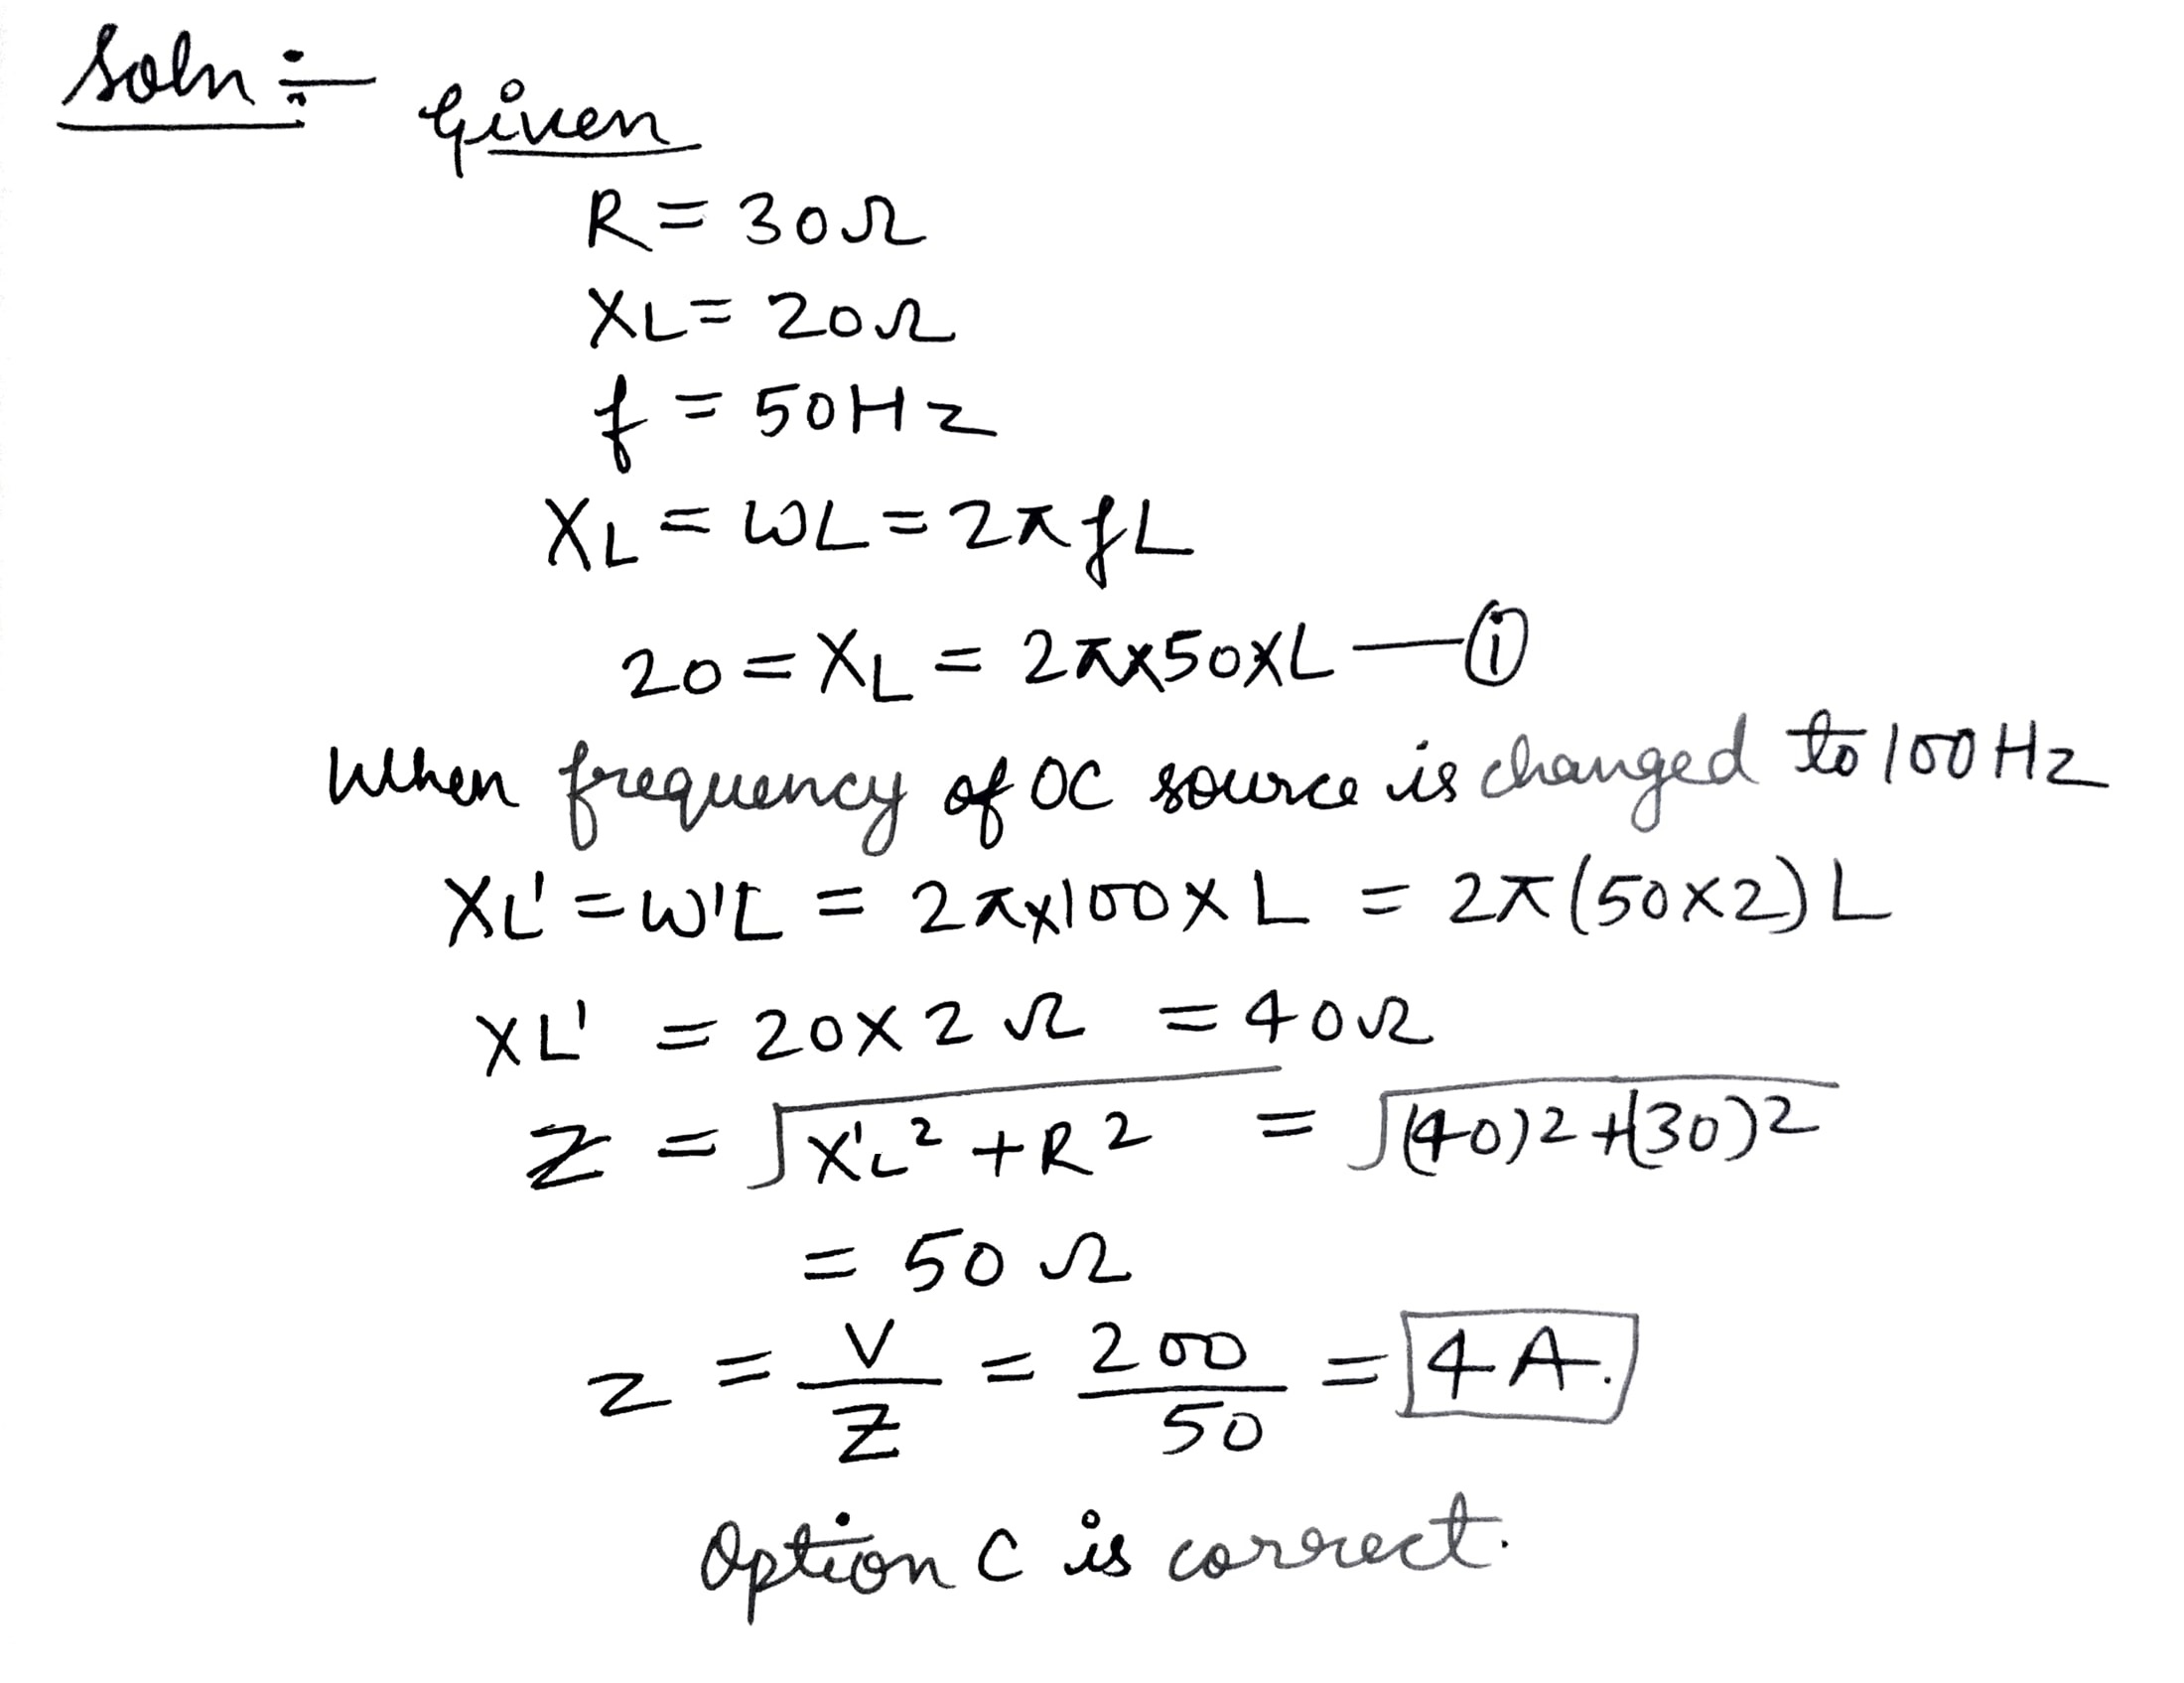 Soln :-
Given
R = 30Ω
XL = 20Ω
f = 50Hz
XL = ωL = 2πfL
20 = XL = 2π×50×L —(i)
When frequency of OC source is changed to 100 Hz
XL' = ω'L = 2π×100×L = 2π(50×2)L
XL' = 20×2Ω = 40Ω
Z = √X'L² + R² = √(40)2+(30)2
= 50Ω
z = V/Z = 200/50 = 4A.
Option C is correct.